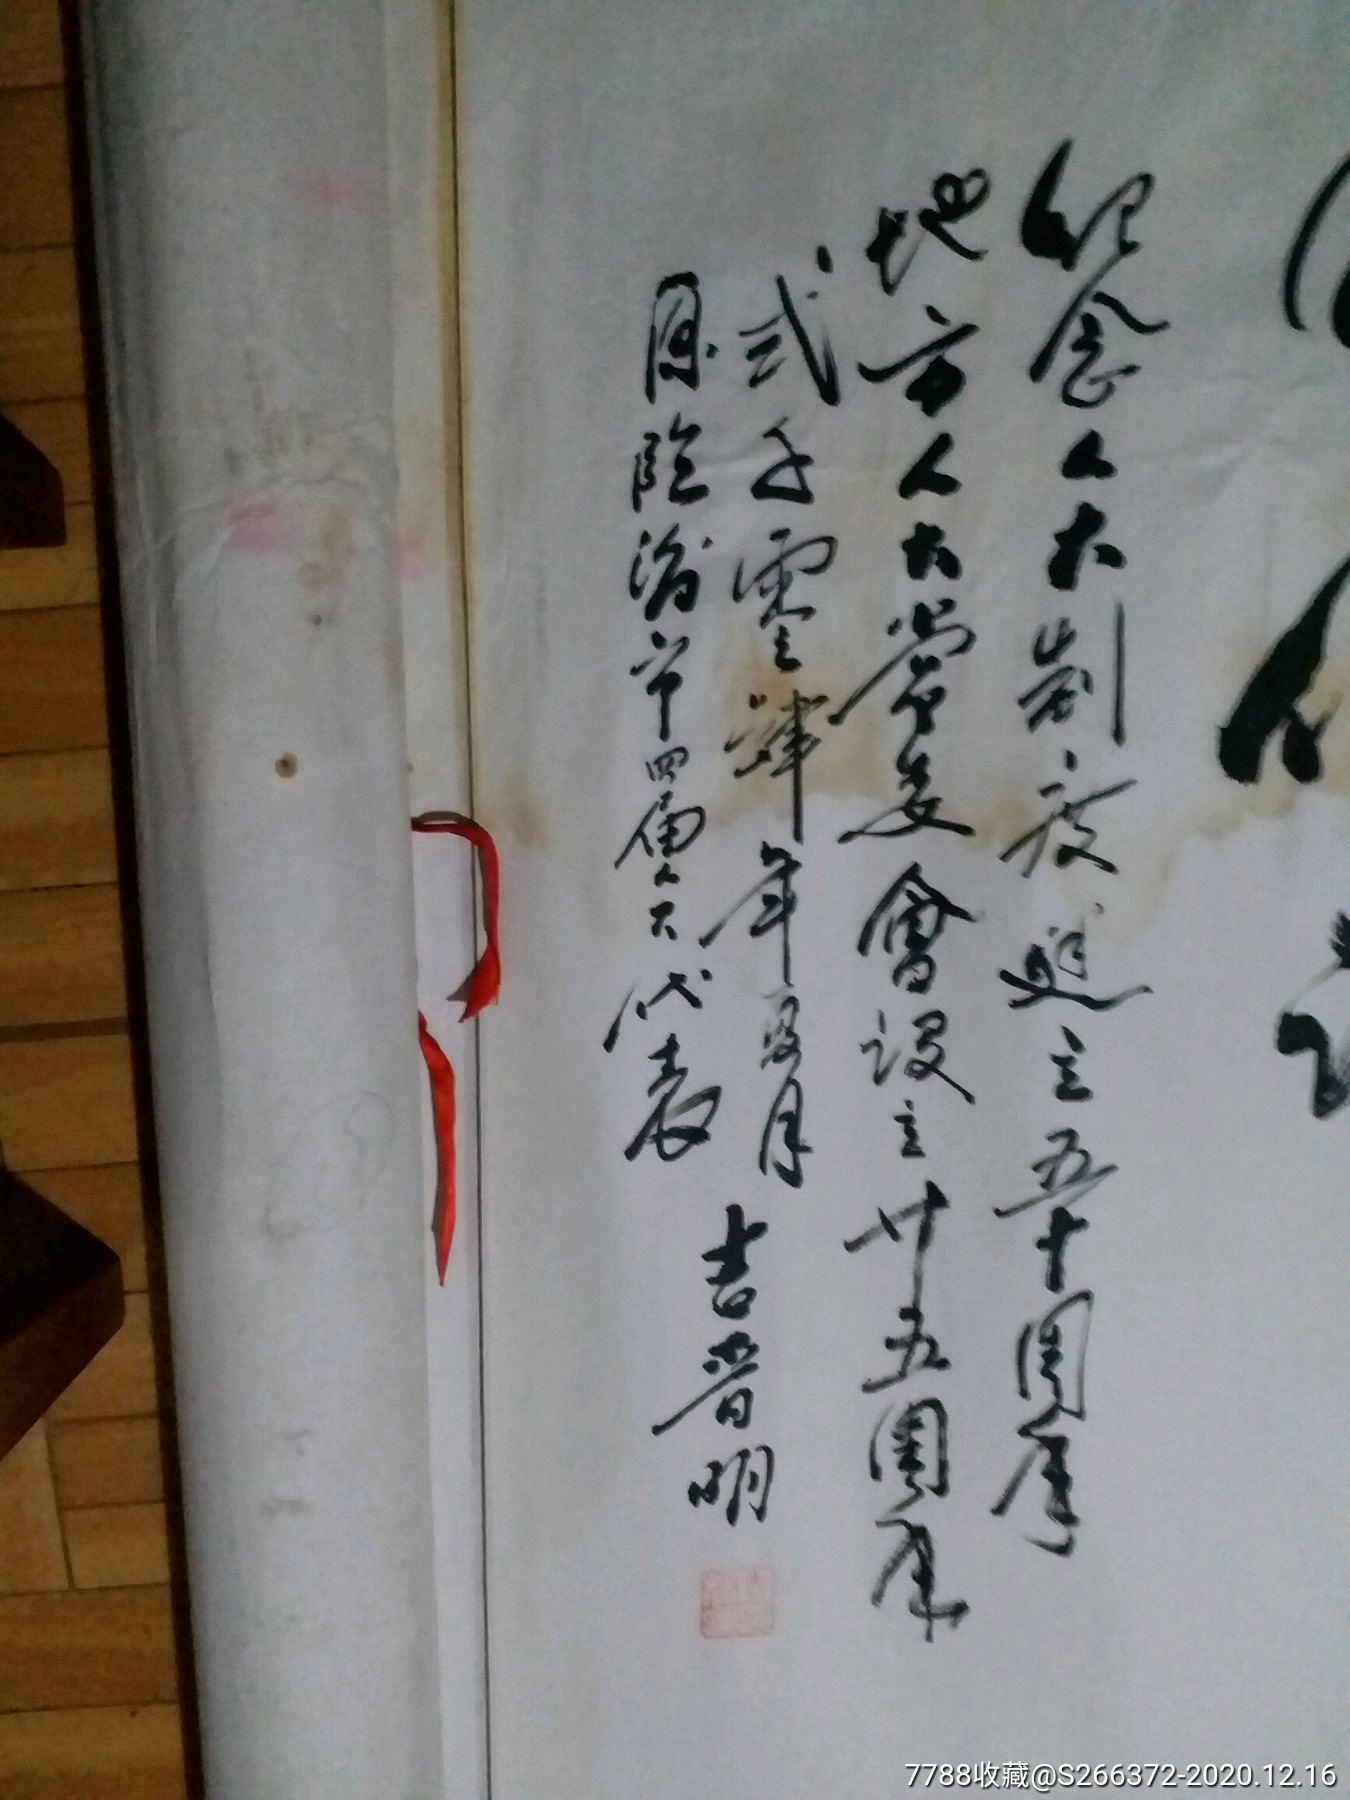 纪念人大制度建立五十周年
地方人大常委會设立廿五周年
弍千零肆年夏月
原临汾市四届人大代表
吉晋明
7788收藏@S266372-2020.12.16